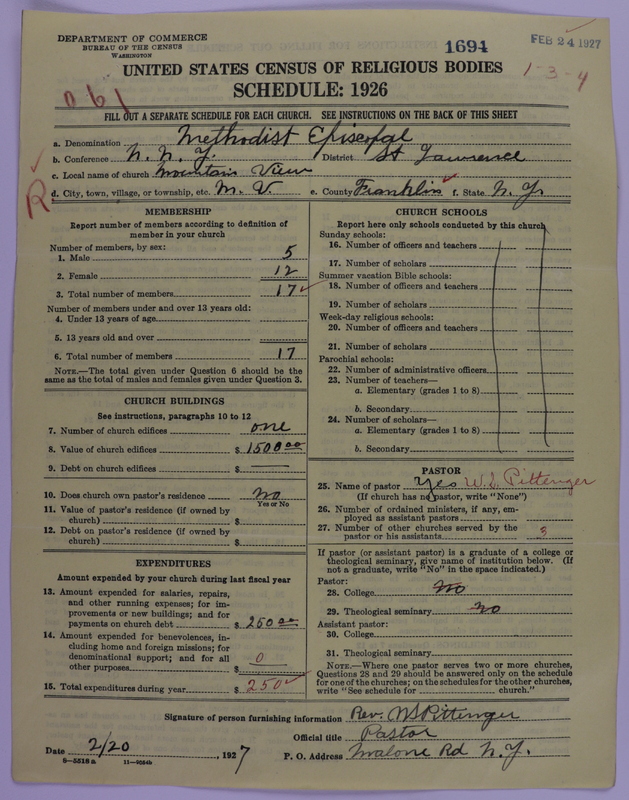 DEPARTMENT OF COMMERCE
BUREAU OF THE CENSUS
WASHINGTON
1694
FEB 24 1927
UNITED STATES CENSUS OF RELIGIOUS BODIES
1-3-4
SCHEDULE: 1926
FILL OUT A SEPARATE SCHEDULE FOR EACH CHURCH. SEE INSTRUCTIONS ON THE BACK OF THIS SHEET
a. Denomination Methodist Episcopal
b. Conference N. N. Y. District St Lawrence
c. Local name of church Mountain View
R
d. City, town, village, or township, etc. M. V. e. County Franklin f. State N. Y.
MEMBERSHIP
Report number of members according to definition of
member in your church
Number of members, by sex:
1. Male 5
2. Female 12
3. Total number of members 17
Number of members under and over 13 years old:
4. Under 13 years of age
5. 13 years old and over
6. Total number of members 17
NOTE.—The total given under Question 6 should be
same as the total of males and females given under Question 3.
CHURCH BUILDINGS
See instructions, paragraphs 10 to 12
7. Number of church edifices one
8. Value of church edifices $ 1500 00
9. Debt on church edifices $ —
10. Does church own pastor's residence No
Yes or No
11. Value of pastor's residence (if owned by
church) $
12. Debt on pastor's residence (if owned by
church) $
EXPENDITURES
Amount expended by your church during last fiscal year
13. Amount expended for salaries, repairs,
and other running expenses; for im-
provements or new buildings; and for
payments on church debt $ 250 00
14. Amount expended for benevolences, in-
cluding home and foreign missions; for
denominational support; and for all
other purposes $ 0
15. Total expenditures during year $ 250
CHURCH SCHOOLS
Report here only schools conducted by this church
Sunday schools:
16. Number of officers and teachers
17. Number of scholars
Summer vacation Bible schools:
18. Number of officers and teachers
19. Number of scholars
Week-day religious schools:
20. Number of officers and teachers
21. Number of scholars
Parochial schools:
22. Number of administrative officers
23. Number of teachers—
a. Elementary (grades 1 to 8)
b. Secondary
24. Number of scholars—
a. Elementary (grades 1 to 8)
b. Secondary
PASTOR
25. Name of pastor Yes W. S. Pittenger
(If church has no pastor, write "None")
26. Number of ordained ministers, if any, em-
ployed as assistant pastors
27. Number of other churches served by the
pastor or his assistants 3
If pastor (or assistant pastor) is a graduate of a college or
theological seminary, give name of institution below. (If
not a graduate, write "No" in the space indicated.)
Pastor:
28. College No
29. Theological seminary No
Assistant pastor:
30. College
31. Theological seminary
NOTE.—Where one pastor serves two or more churches,
Questions 28 and 29 should be answered only on the schedule
for one of the churches; on the schedules for the other churches,
write "See schedule for church."
Signature of person furnishing information Rev. W S Pittenger
Official title Pastor
Date 2/20, 1927 P. O. Address Malone Rd N. Y.
8-5518 a 11-9054b